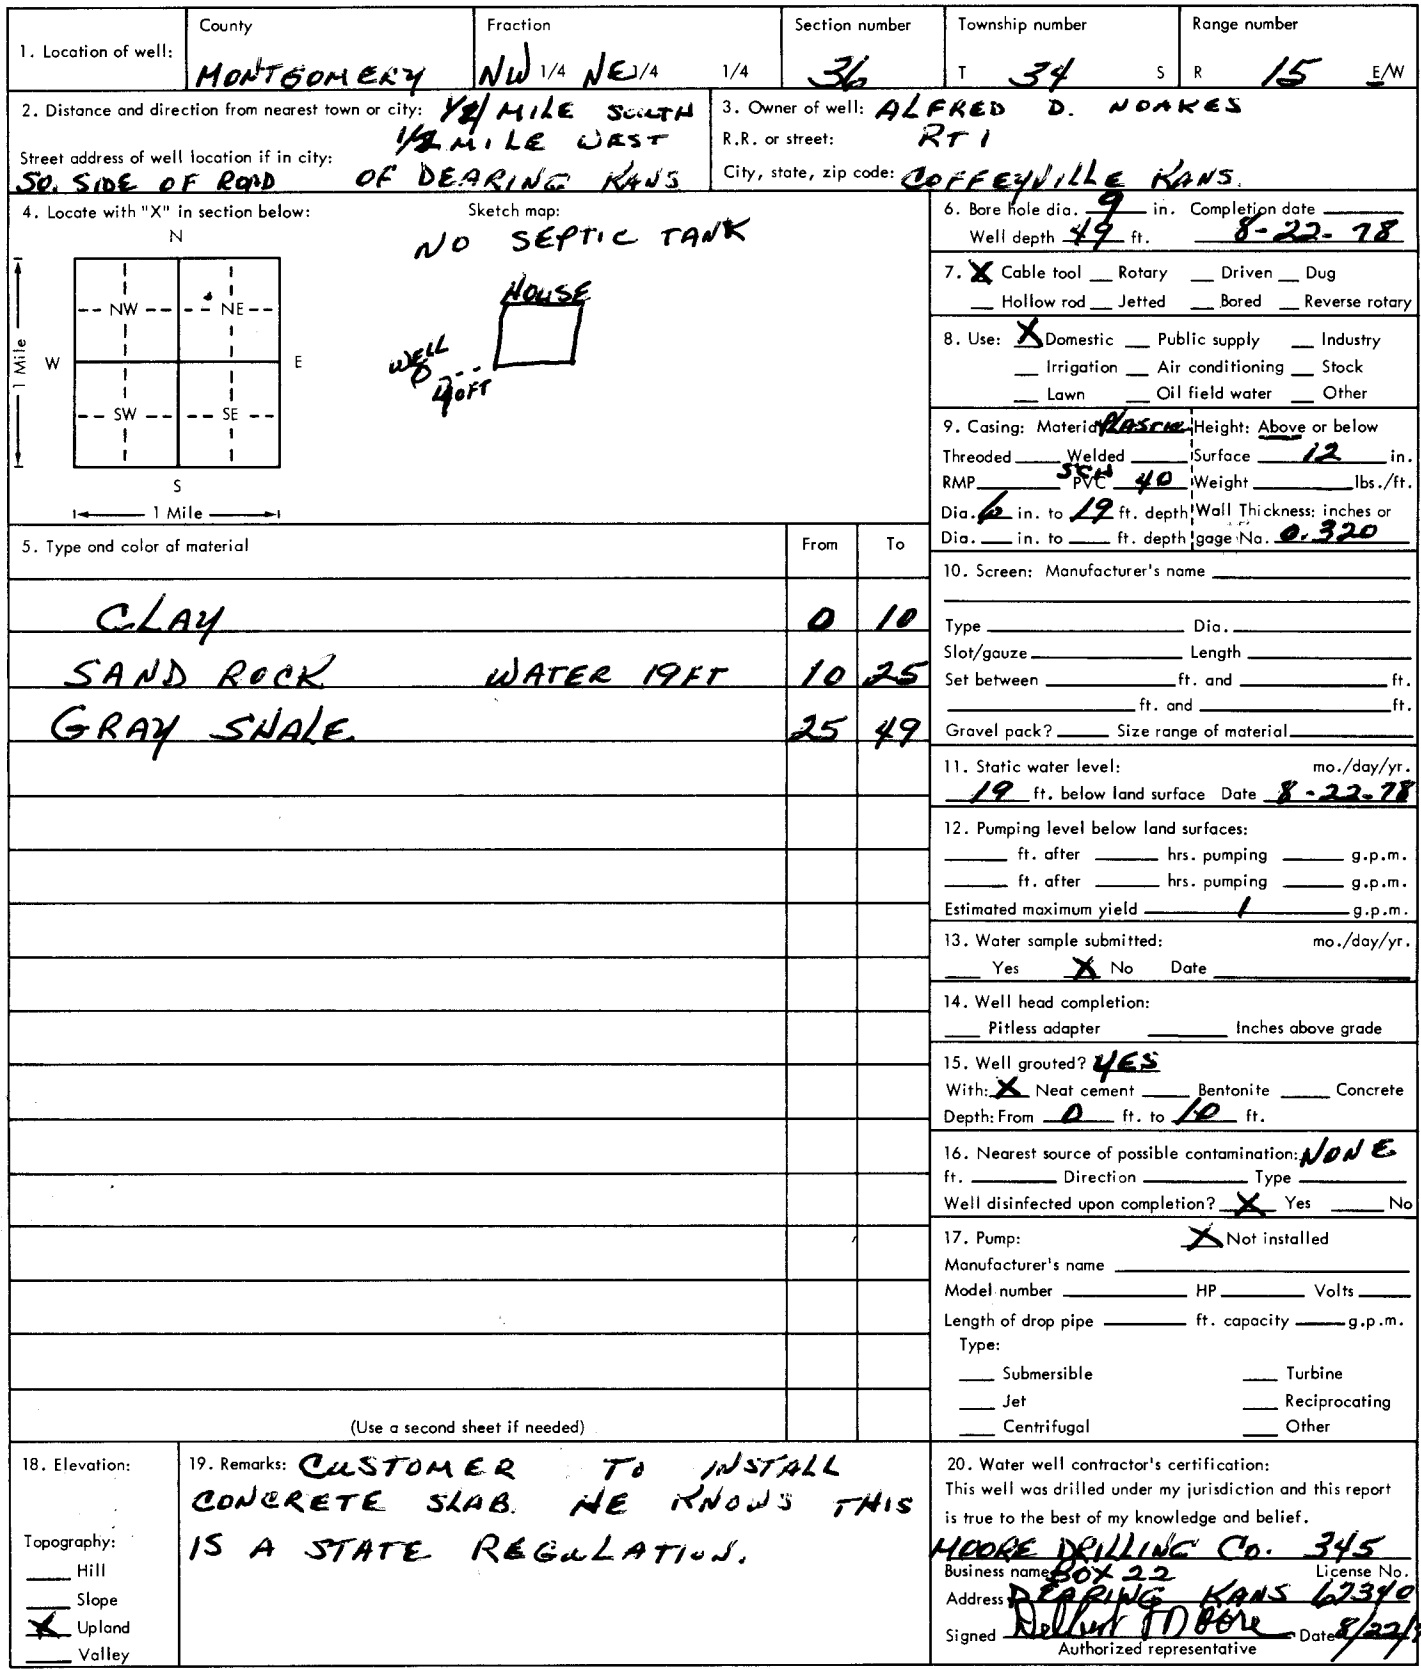 1. Location of well: County MONTGOMERY Fraction NW 1/4 NE 1/4 1/4 Section number 36 Township number T 34 S Range number R 15 E/W
2. Distance and direction from nearest town or city: MILE SOUTH
1/2 MILE WEST
Street address of well location if in city:
SO. SIDE OF ROAD OF DEARING KANS
3. Owner of well: ALFRED D. NOAKES
R.R. or street: RT 1
City, state, zip code: COFFEYVILLE KANS.
4. Locate with "X" in section below:
N
NW NE
W E
SW SE
S
1 Mile
1 Mile
Sketch map:
NO SEPTIC TANK
HOUSE
WELL
40FT
5. Type and color of material From To
CLAY 0 10
SAND ROCK WATER 19FT 10 25
GRAY SHALE 25 49
(Use a second sheet if needed)
6. Bore hole dia. 9 in. Completion date
Well depth 49 ft. 8-22-78
7. X Cable tool Rotary Driven Dug
Hollow rod Jetted Bored Reverse rotary
8. Use: X Domestic Public supply Industry
Irrigation Air conditioning Stock
Lawn Oil field water Other
9. Casing: Material PLASTIC Height: Above or below
Threaded Welded Surface 12 in.
RMP SCH PVC 40 Weight lbs./ft.
Dia. 6 in. to 19 ft. depth Wall Thickness: inches or
Dia. in. to ft. depth gage No. 0.320
10. Screen: Manufacturer's name
Type Dia.
Slot/gauze Length
Set between ft. and ft.
ft. and ft.
Gravel pack? Size range of material
11. Static water level: mo./day/yr.
19 ft. below land surface Date 8-22-78
12. Pumping level below land surfaces:
ft. after hrs. pumping g.p.m.
ft. after hrs. pumping g.p.m.
Estimated maximum yield 1 g.p.m.
13. Water sample submitted: mo./day/yr.
Yes X No Date
14. Well head completion:
Pitless adapter Inches above grade
15. Well grouted? YES
With: X Neat cement Bentonite Concrete
Depth: From 0 ft. to 10 ft.
16. Nearest source of possible contamination: NONE
ft. Direction Type
Well disinfected upon completion? X Yes No
17. Pump: X Not installed
Manufacturer's name
Model number HP Volts
Length of drop pipe ft. capacity g.p.m.
Type:
Submersible Turbine
Jet Reciprocating
Centrifugal Other
18. Elevation:
Topography:
Hill
Slope
X Upland
Valley
19. Remarks: CUSTOMER TO INSTALL
CONCRETE SLAB. HE KNOWS THIS
IS A STATE REGULATION.
20. Water well contractor's certification:
This well was drilled under my jurisdiction and this report
is true to the best of my knowledge and belief.
MOORE DRILLING Co. 345
Business name BOX 22 License No.
Address DEARING KANS 67340
Signed Delbert Moore Date 8/22/
Authorized representative